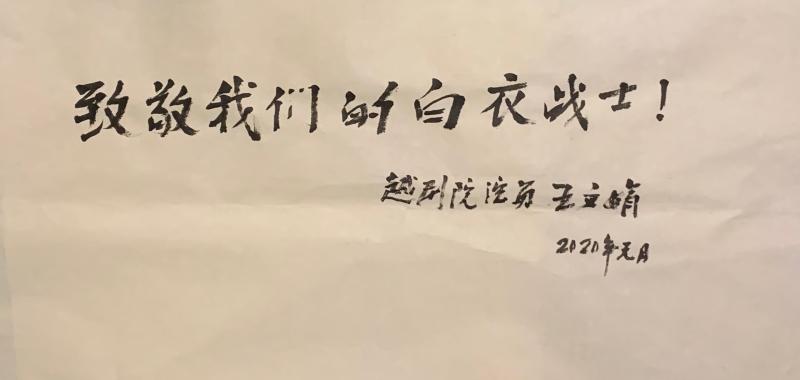 致敬我们的白衣战士！
越剧院演员 王文娟
2020年元月